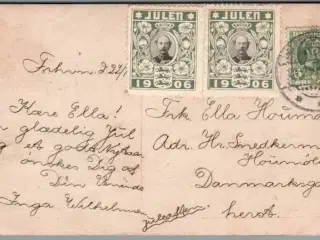 JULEN
1906
JULEN
1906
Kære Ella!
glædelig Jul
og et godt Nytaar
ønskes Dig af
Din Veninde
Inga Wilhelmsen
Frk. Ella Houmø
Adr. Hr. Snedkerm
Houmøl
Danmarksga
herst.